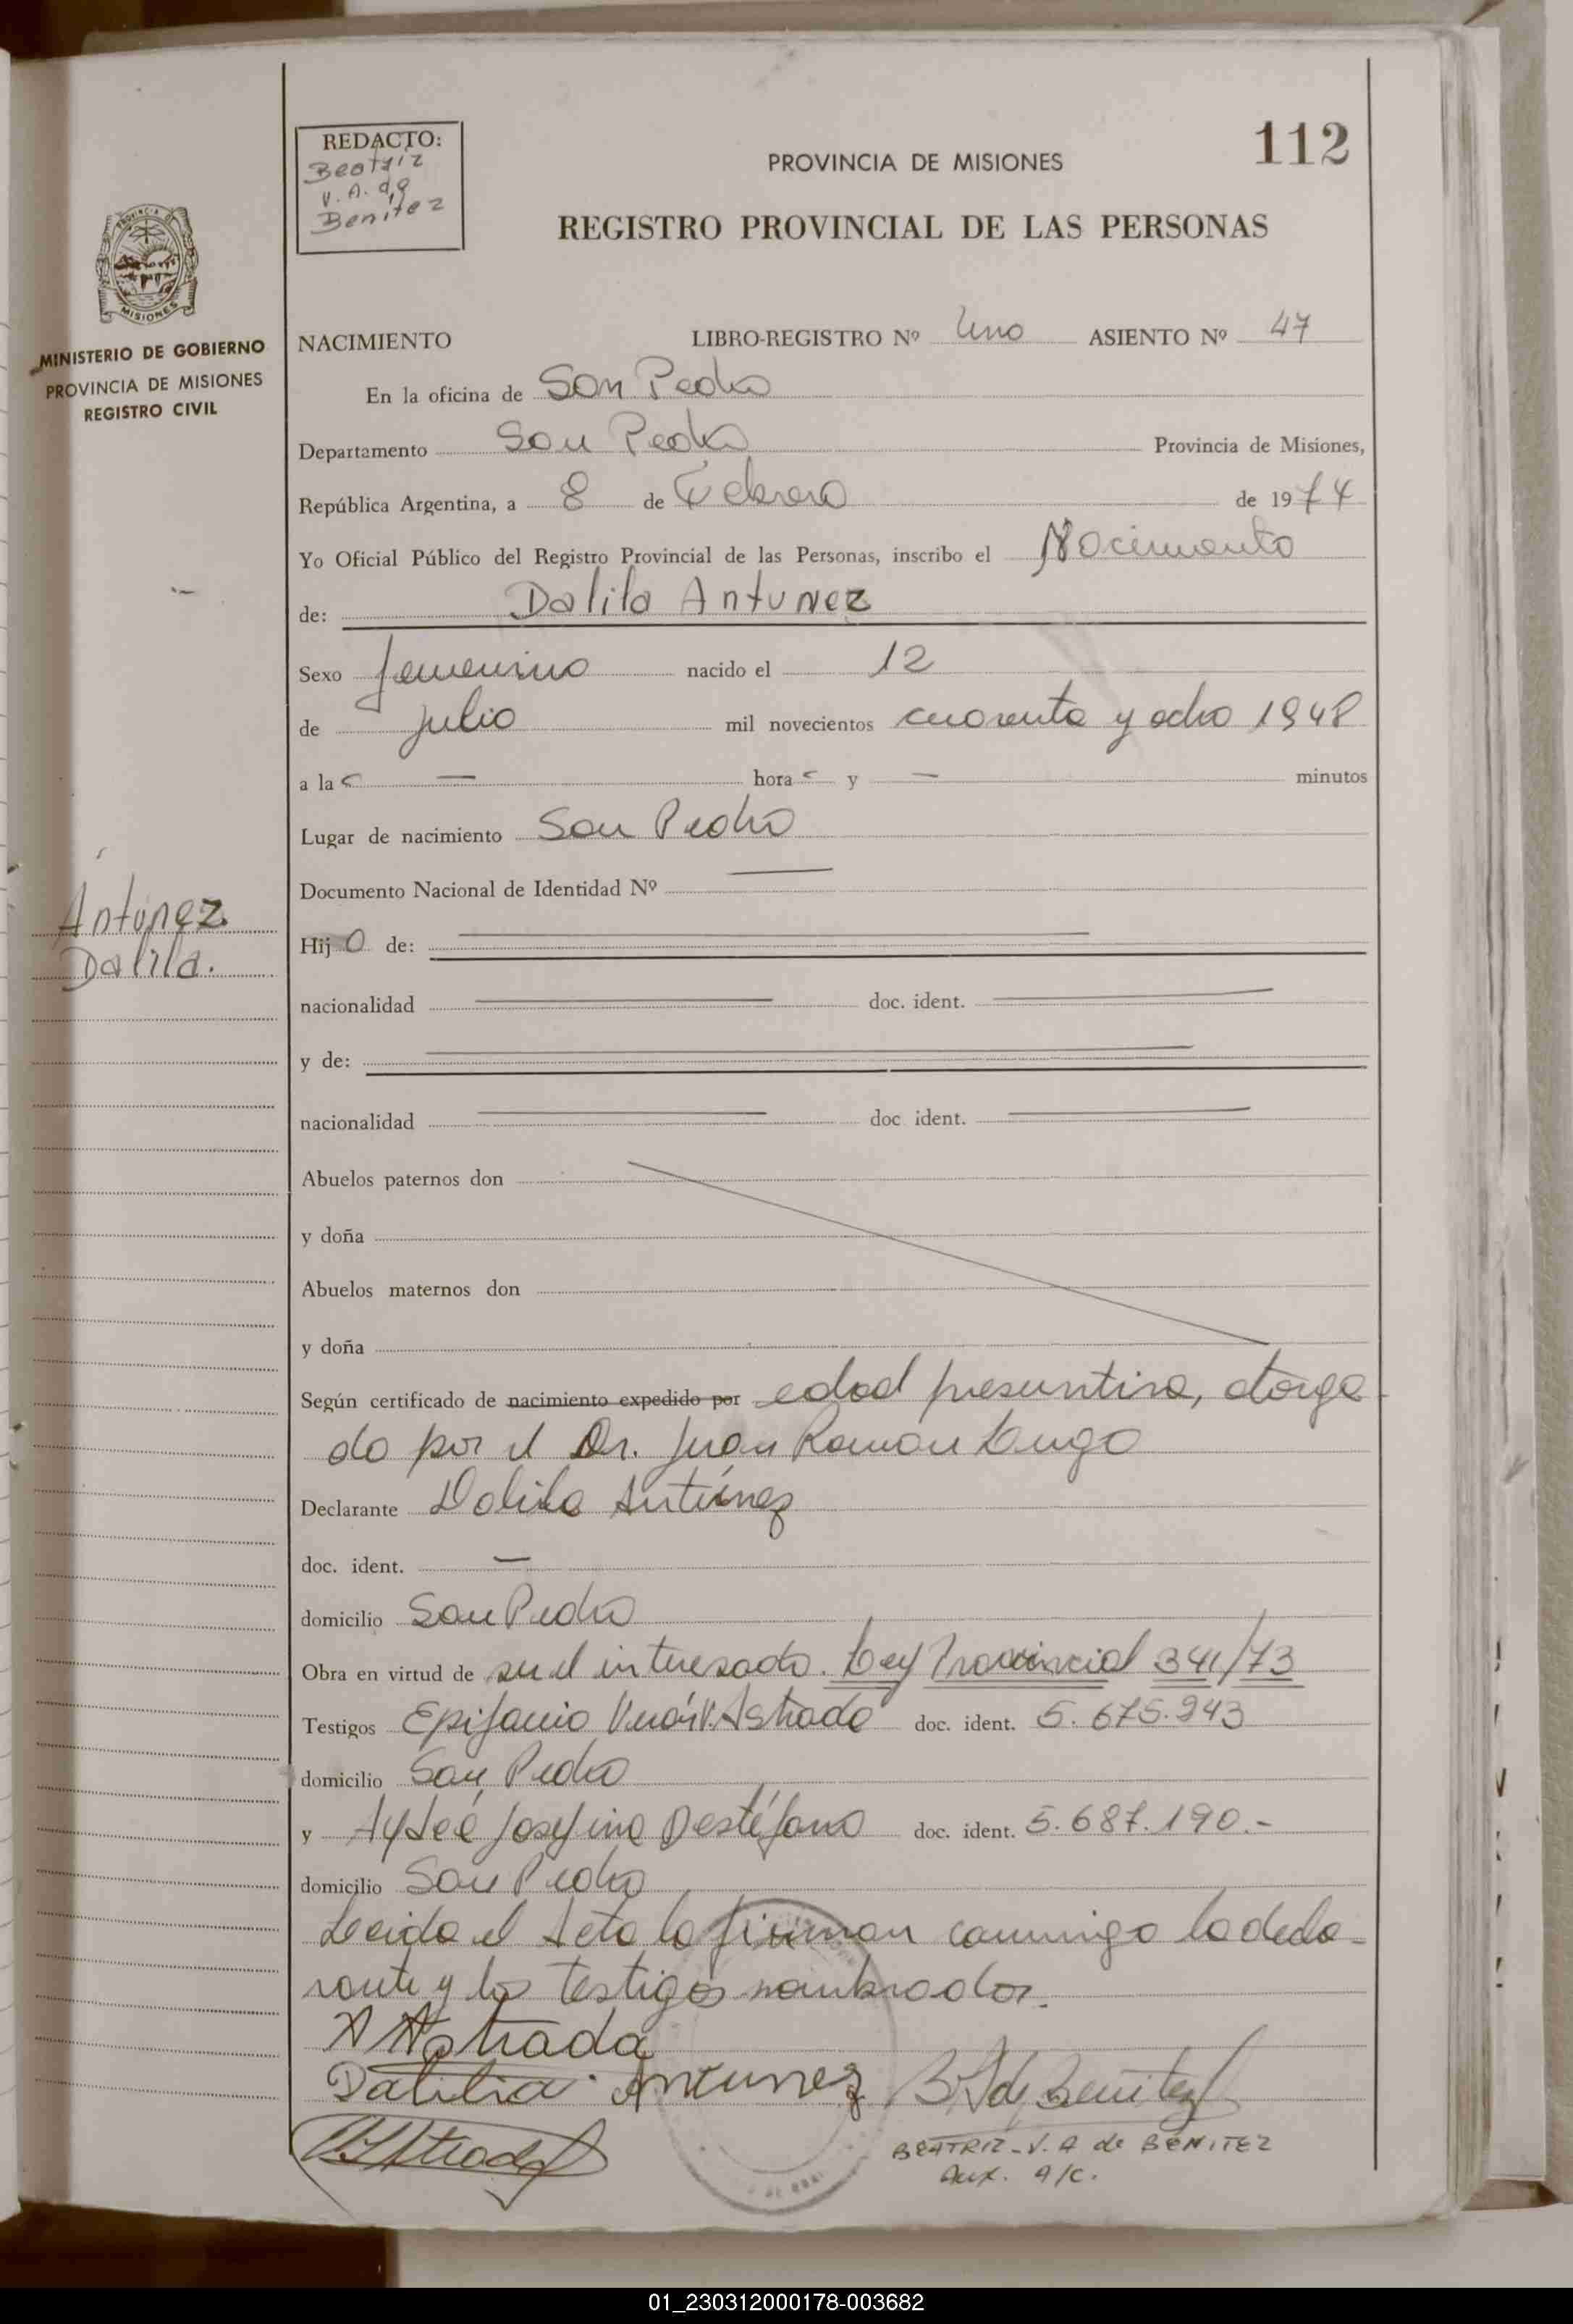 112
REDACTO:
Beatriz
V. A. de
Benitez
PROVINCIA DE MISIONES
REGISTRO PROVINCIAL DE LAS PERSONAS
PROVINCIA DE
MISIONES
MINISTERIO DE GOBIERNO
PROVINCIA DE MISIONES
REGISTRO CIVIL
NACIMIENTO LIBRO-REGISTRO Nº Uno ASIENTO Nº 47
En la oficina de San Pedro
Departamento San Pedro Provincia de Misiones,
República Argentina, a 8 de Febrero de 1974
Yo Oficial Público del Registro Provincial de las Personas, inscribo el Nacimiento
de: Dalila Antunez
Sexo femenino nacido el 12
de julio mil novecientos cuarenta y ocho 1948
a las — horas y — minutos
Lugar de nacimiento San Pedro
Documento Nacional de Identidad Nº —
Antunez
Dalila.
Hijo de:
nacionalidad doc. ident.
y de:
nacionalidad doc. ident.
Abuelos paternos don
y doña
Abuelos maternos don
y doña
Según certificado de nacimiento expedido por edad presuntiva, otorga-
do por el Dr. Juan Ramon Lugo
Declarante Dalila Antúnez
doc. ident. —
domicilio San Pedro
Obra en virtud de ser el interesado. Ley Provincial 341/73
Testigos Epifanio Astrada doc. ident. 5.675.943
domicilio San Pedro
y Aydeé Josefina Destéfano doc. ident. 5.687.190.-
domicilio San Pedro
Leida el Acta la firman conmigo la decla-
rante y los testigos nombrados.
Astrada
Dalilia Antunez B V A de Benitez
BEATRIZ - V. A de BENITEZ
Aux. a/c.
01_230312000178-003682